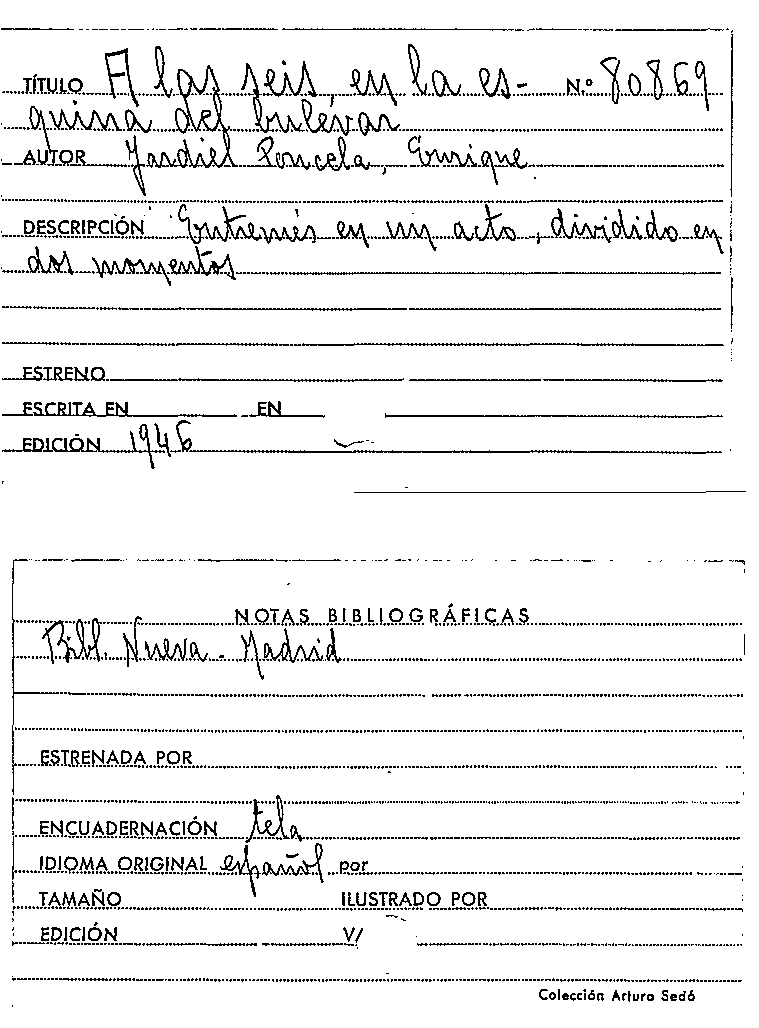 TÍTULO A las seis, en la es- N.º 80869
quina del bulevar
AUTOR Jardiel Poncela, Enrique
DESCRIPCIÓN Entremés en un acto, dividido en
dos momentos
ESTRENO
ESCRITA EN EN
EDICIÓN 1946
NOTAS BIBLIOGRÁFICAS
Bibl. Nueva - Madrid
ESTRENADA POR
ENCUADERNACIÓN tela
IDIOMA ORIGINAL español por
TAMAÑO ILUSTRADO POR
EDICIÓN V/
Colección Arturo Sedó